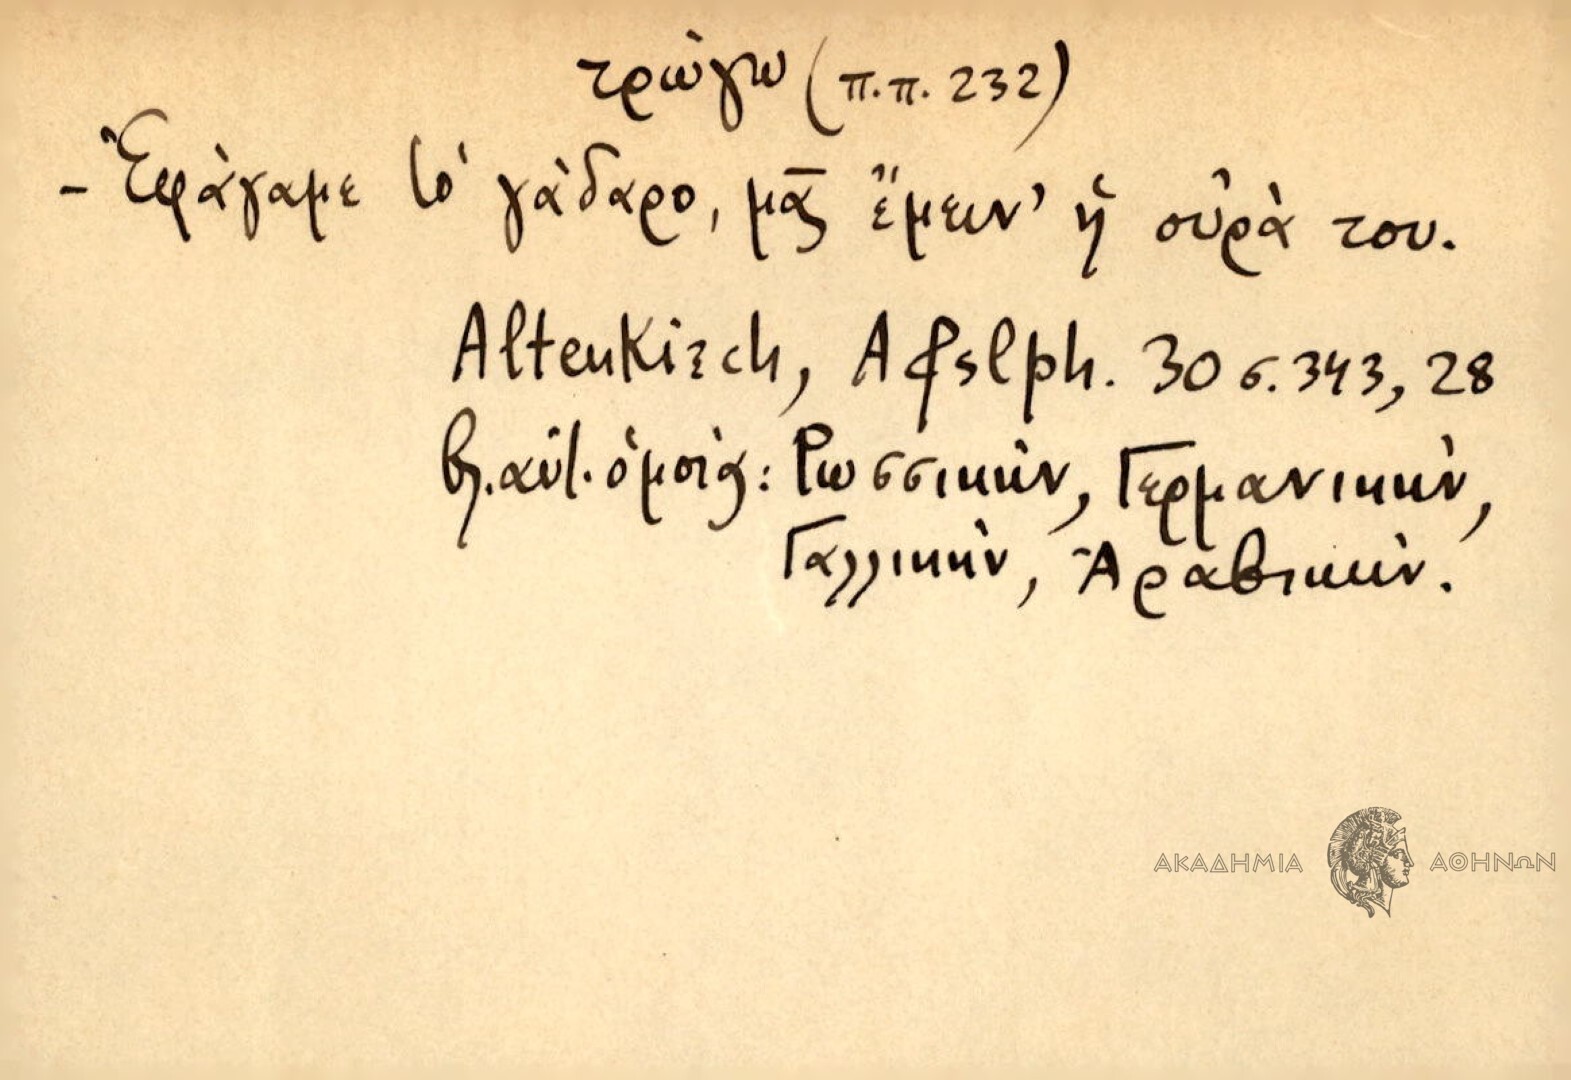 τρώγω (π.π. 232)
- Ἐφάγαμε τὸ γάδαρο, μᾶς ἔμειν' ἡ οὐρά του.
Altenkirch, Afslph. 30 σ. 343, 28
βλ. αὐτ. ὁμοίας: Ρωσσικήν, Γερμανικήν,
Γαλλικήν, Ἀραβικήν.
ΑΚΑΔΗΜΙΑ ΑΘΗΝΩΝ